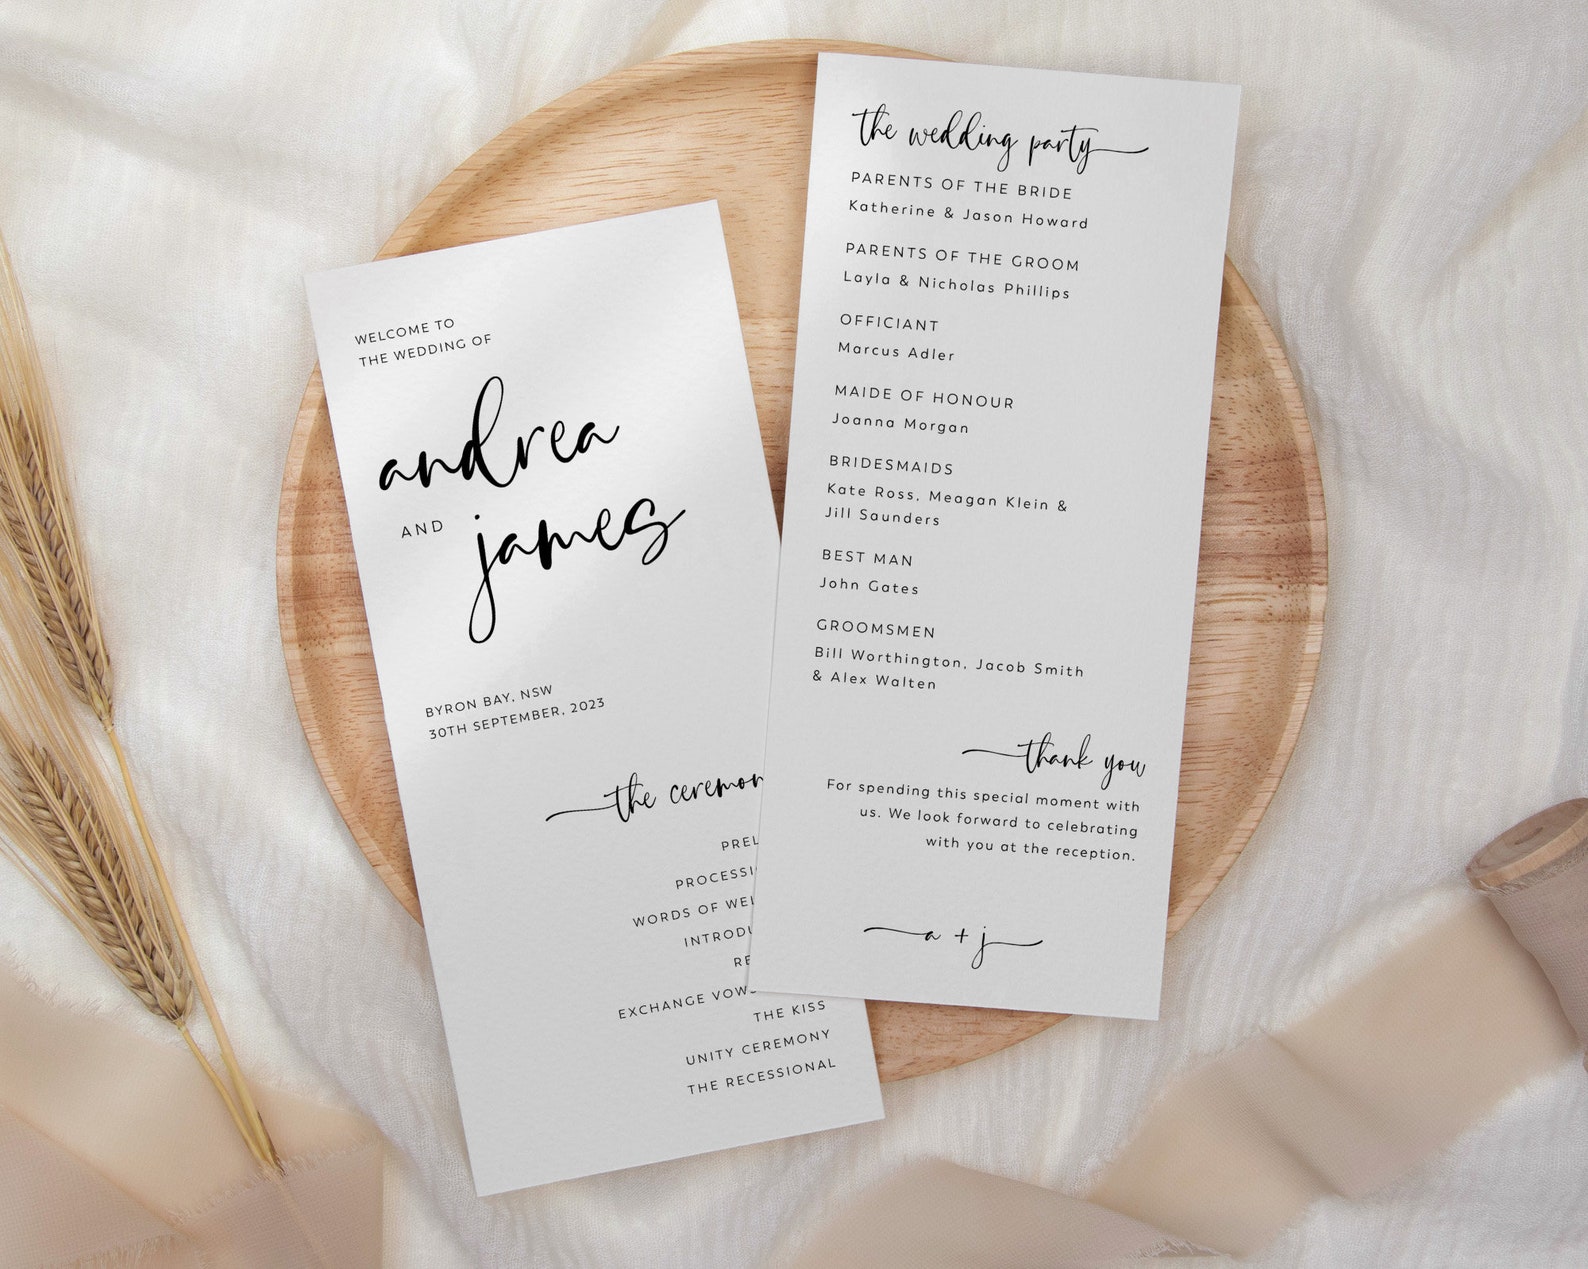 WELCOME TO
THE WEDDING OF
andrea
AND
james
BYRON BAY, NSW
30TH SEPTEMBER, 2023
the
WORDS OF
EXCHANGE
THE KISS
UNITY CEREMONY
THE RECESSIONAL
the wedding party
PARENTS OF THE BRIDE
Katherine & Jason Howard
PARENTS OF THE GROOM
Layla & Nicholas Phillips
OFFICIANT
Marcus Adler
MAIDE OF HONOUR
Joanna Morgan
BRIDESMAIDS
Kate Ross, Meagan Klein &
Jill Saunders
BEST MAN
John Gates
GROOMSMEN
Bill Worthington, Jacob Smith
& Alex Walten
thank you
For spending this special moment with
us. We look forward to celebrating
with you at the reception.
a + j